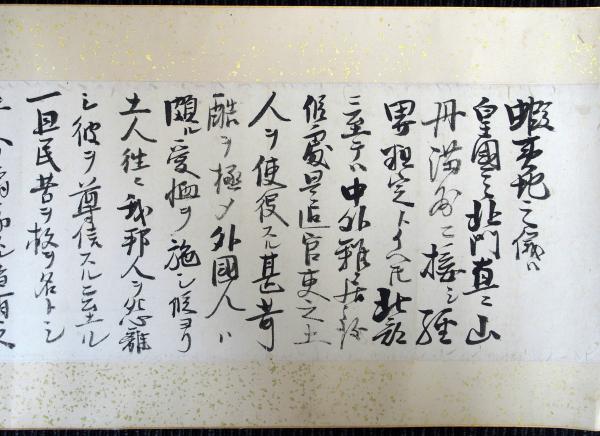 蝦夷地之儀ハ
皇國之北門直ニ山
丹満州ニ接シ經
界粗定トイヘ𪜈北部
ニ至テハ中外雜居致
候處是迄官吏之土
人ヲ使役スル甚苛
酷ヲ極メ外國人ハ
頗ル愛恤ヲ施シ候ヨリ
土人往々我邦人ヲ怨離
シ彼ヲ尊信スルニ至ル
一旦民苦ヲ救フヲ名トシ